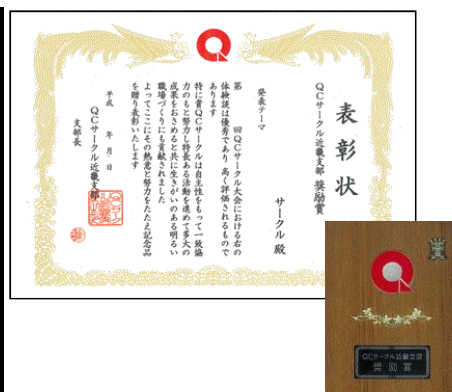 表彰状
QCサークル近畿支部 奨励賞
サークル 殿
発表テーマ
第 回QCサークル大会における右の
体験談は優秀であり 高く評価されるもので
あります
特に貴QCサークルは自主性をもって一致協
力のもと努力し特長ある活動を進めて多大の
成果をおさめると共に生きがいのある明るい
職場づくりにも貢献されました
よってここにその熱意と努力をたたえ記念品
を贈り表彰いたします
平成 年 月 日
QCサークル近畿支部
支部長
QCサークル近畿支部
奨励賞